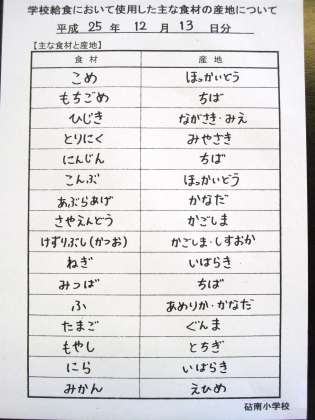 学校給食において使用した主な食材の産地について
平成 25 年 12 月 13 日分
【主な食材と産地】
食材 産地
こめ ほっかいどう
もちごめ ちば
ひじき ながさき・みえ
とりにく みやざき
にんじん ちば
こんぶ ほっかいどう
あぶらあげ かなだ
さやえんどう かごしま
けずりぶし(かつお) かごしま・しずおか
ねぎ いばらき
みつば ちば
ふ あめりか・かなだ
たまご ぐんま
もやし とちぎ
にら いばらき
みかん えひめ
砧南小学校